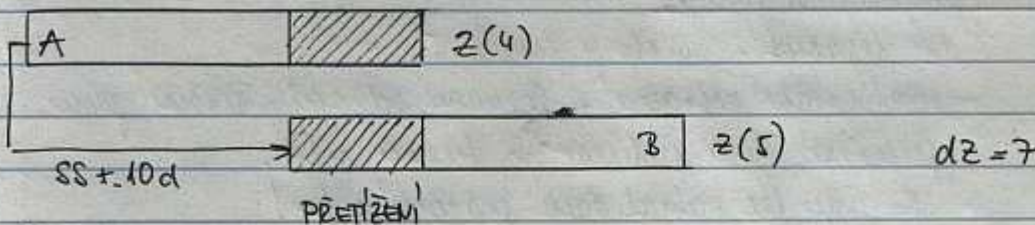 A Z(4)
B Z(5) dZ = 7
SS+10d
PŘETÍŽENÍ